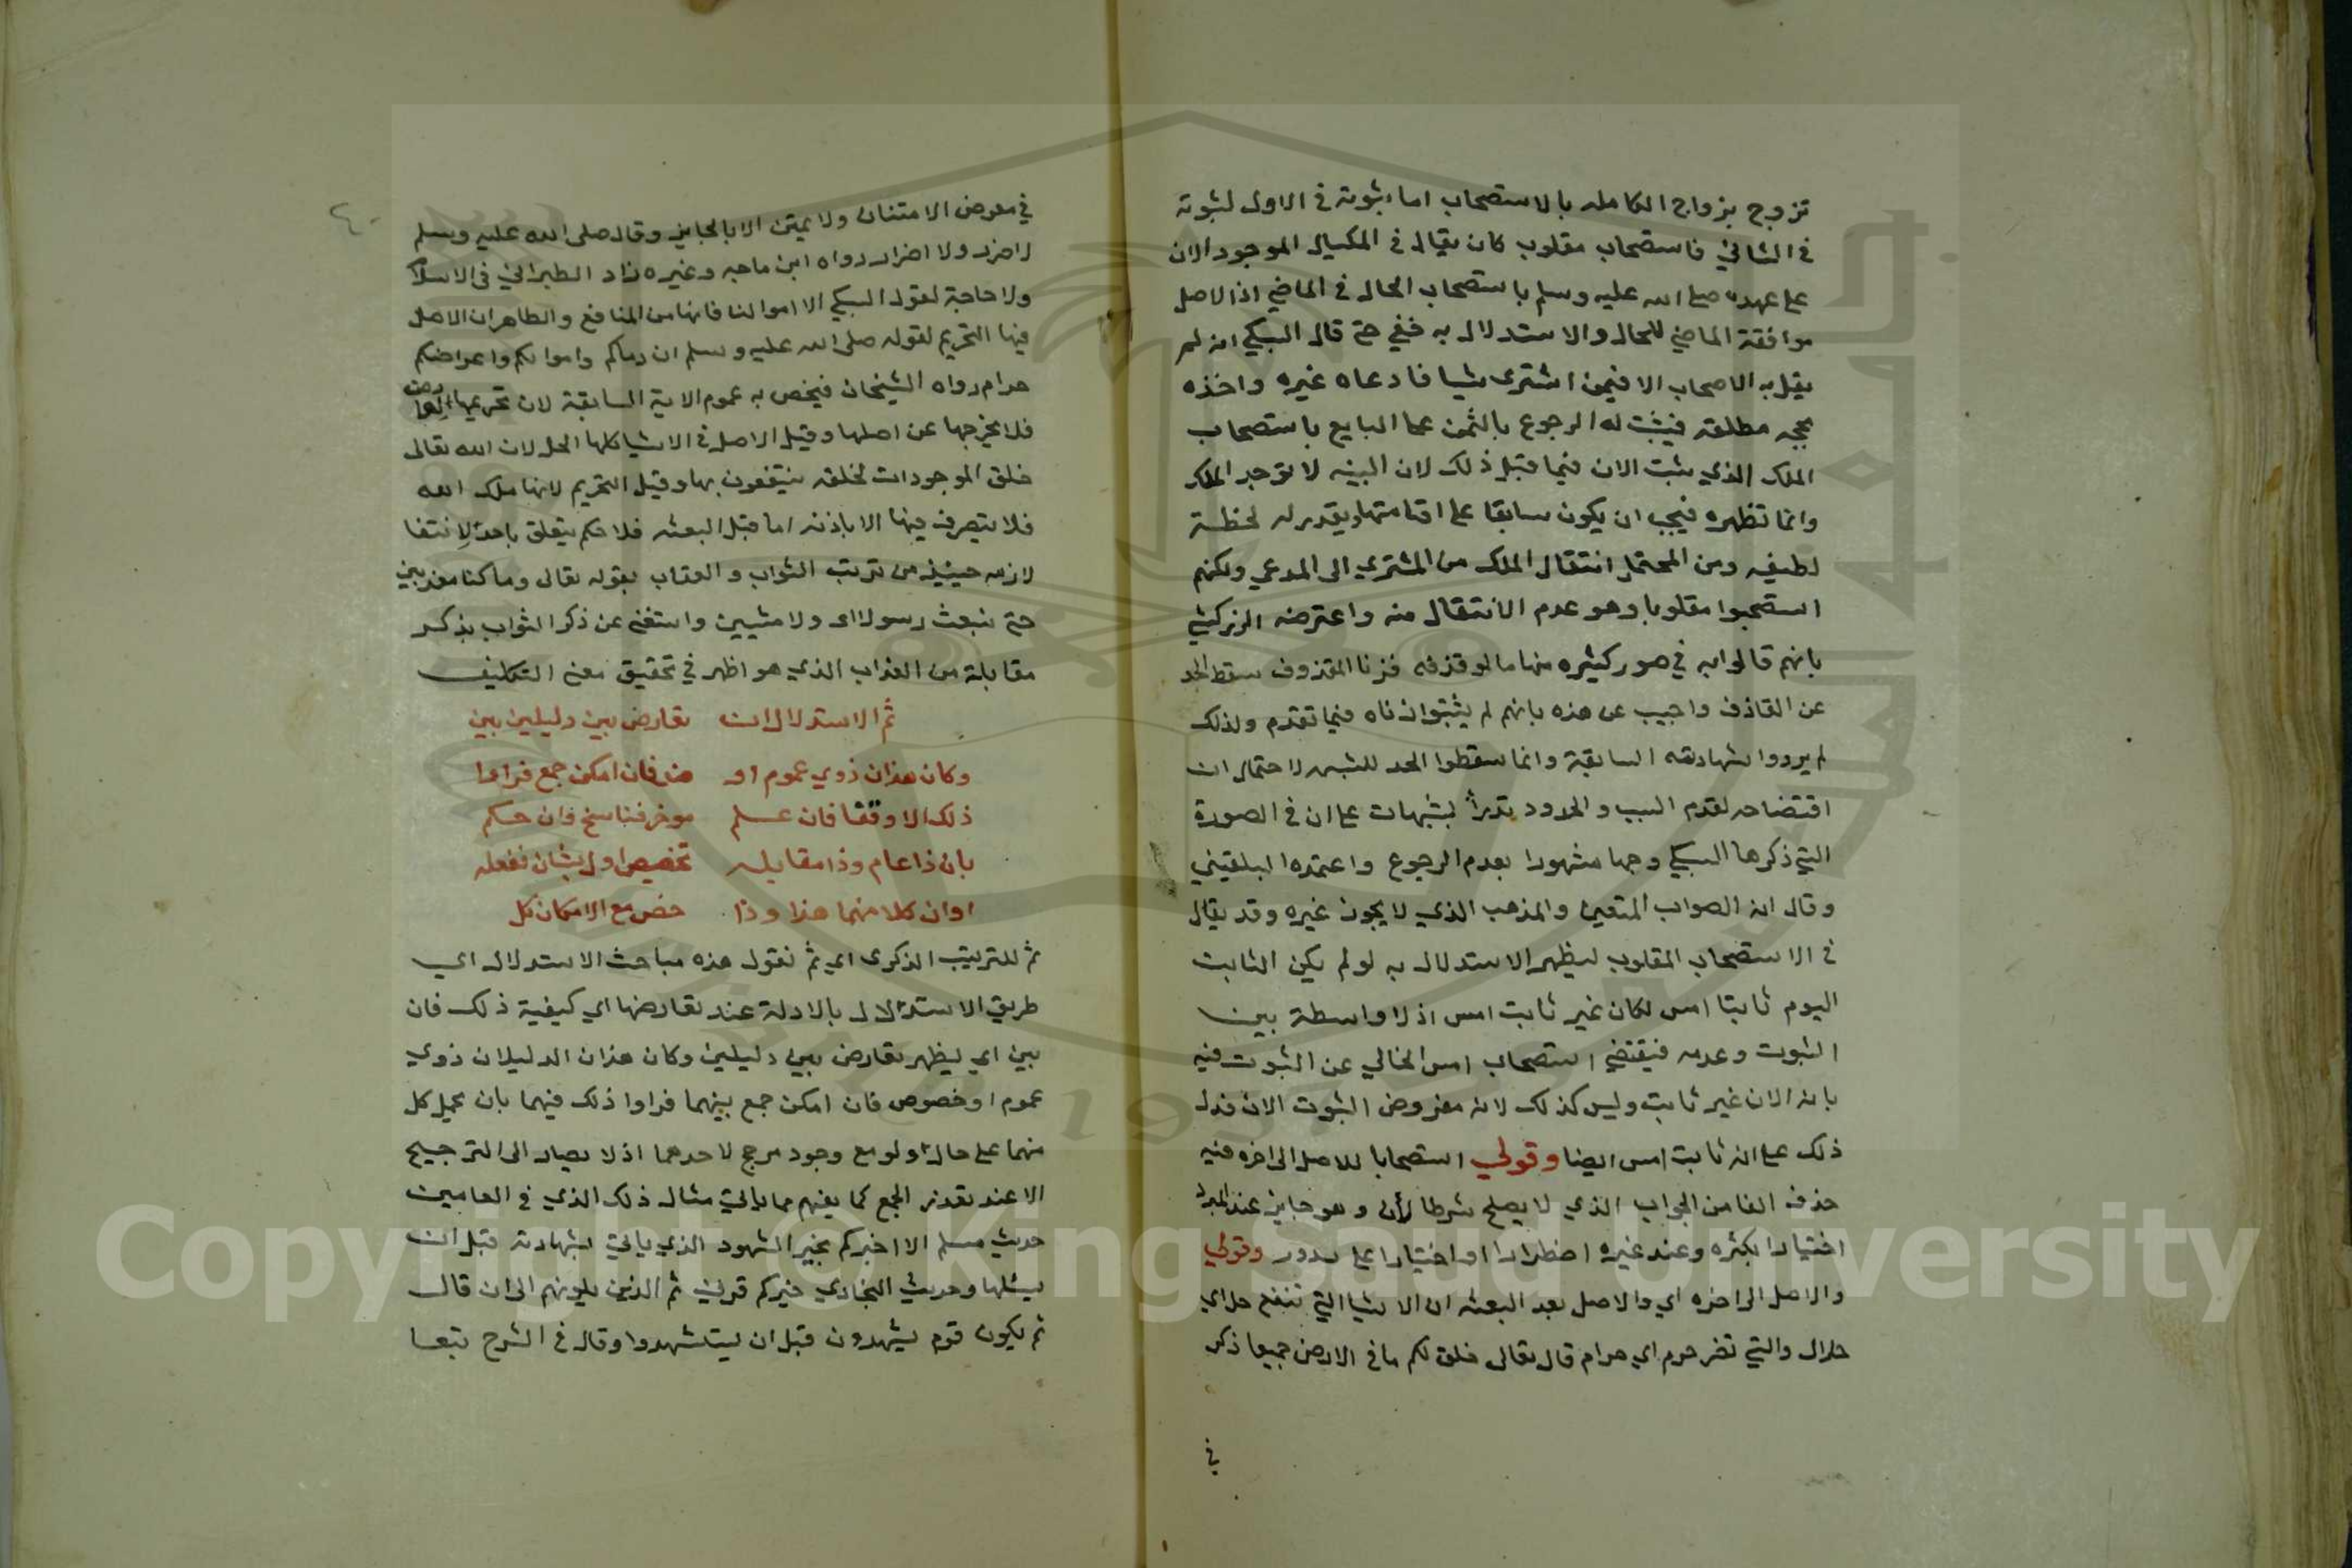 تزوج بزواج الكامله بالاستصحاب اما ثبوته في الاول لثبوته
في الثاني فاستصحاب مقلوب كان يقال في المكيال الموجود الان
على عهده صلى الله عليه وسلم باستصحاب الحال في الماضي اذ الاصل
موافقة الماضي للحال والاستدلال به خفي حتى قال السبكي انه لم
يقل به الاصحاب الا فيمن اشترى شيا فادعاه غيره واخذه
بحجه مطلقه فيثبت له الرجوع بالثمن على البايع باستصحاب
الملك الذي ثبت الان فيما قبل ذلك لان البينه لا توجد الملك
وانما تظهره فيجب ان يكون سابقا على اقامتها ويقدر له لحظة
لطيفه ومن المحتمل انتقال الملك من المشتري الى المدعي ولكنهم
استصحبوا مقلوبا وهو عدم الانتقال منه واعترضه الزركشي
بانهم قالوا به في صور كثيره منها ما لو قذفه فزنا المقذوف سقط الحد
عن القاذف واجيب عن هذه بانهم لم يثبتوا زناه فيما تقدم ولذلك
لم يردوا شهادته السابقة وانما سقطوا الحد للشبهه لاحتمال ان
اقتضاحه لتقدم السبب والحدود تدرأ بشبهات على ان في الصورة
التي ذكرها السبكي وجها مشهورا بعدم الرجوع واعتمده البلقيني
وقال انه الصواب المتعين والمذهب الذي لا يجوز غيره وقد يقال
في الاستصحاب المقلوب ليظهر الاستدلال به لو لم يكن الثابت
اليوم ثابتا امس لكان غير ثابت امس اذ لا واسطة بين
الثبوت وعدمه فيقتضي استصحاب امس الخالي عن الثبوت فيه
بانه الان غير ثابت وليس كذلك لانه مفروض الثبوت الان فدل
ذلك على انه ثابت امس ايضا وقولي استصحابا للاصل الى اخره فيه
حذف الفا من الجواب الذي لا يصلح شرطا لأن وهو جايز عند المبرد
اختيارا بكثره وعند غيره اضطرارا او اختيارا على ندور وقولي
والاصل الى اخره اي والاصل بعد البعثه ان الاشيا التي تنفع حل اي
حلال والتي تضر حرم اي حرام قال تعالى خلق لكم ما في الارض جميعا ذكر
في
٤٠
في معرض الامتنان ولا يمتن الا بالجايز وقال صلى الله عليه وسلم
لا ضرر ولا اضرار رواه ابن ماجه وغيره زاد الطبراني في الاسلام
ولا حاجة لقول السبكي الا اموالنا فانها من المنافع والظاهر ان الاصل
فيها التحريم لقوله صلى الله عليه وسلم ان دماكم واموالكم واعراضكم
حرام رواه الشيخان فيخص به عموم الاية السابقة لان تحريمها لعارض
فلا يخرجها عن اصلها وقيل الاصل في الاشيا كلها الحل لان الله تعالى
خلق الموجودات لخلقه ينتفعون بها وقيل التحريم لانها ملك الله
فلا يتصرف فيها الا باذنه اما قبل البعثه فلا حكم يتعلق باحد لانتفا
لازمه حينيذ من ترتب الثواب والعقاب بقوله تعالى وما كنا معذبين
حتى نبعث رسولا اي ولا مثيبين واستغنى عن ذكر الثواب بذكر
مقابلة من العذاب الذي هو اظهر في تحقيق معنى التكليف
ثم الاستدلال ان تعارض بين دليلين يبين
وكان هذان ذوي عموم او خص فان امكن جمع فراوا
ذلك الا وقفا فان علم موخر فناسخ فان حكم
بان ذا عام وذا مقابله تخصيص اول بشان نفعله
او ان كلا منهما هذا وذا خص مع الامكان كل
ثم للترتيب الذكرى اي ثم نقول هذه مباحث الاستدلال اي
طريق الاستدلال بالادلة عند تعارضها اي كيفية ذلك فان
يبن اي ليظهر تعارض بين دليلين وكان هذان الدليلان ذوي
عموم او خصوص فان امكن جمع بينهما فراوا ذلك فيهما بان يحمل كل
منهما على حال ولو مع وجود مرجح لاحدهما اذ لا يصار الى الترجيح
الا عند تعذر الجمع كما يفهم مما ياتي مثال ذلك الذي في العامين
حديث مسلم الا اخبركم بخير الشهود الذي ياتي بشهادته قبل ان
يسئلها وحديث البخاري خيركم قرني ثم الذين يلونهم الى ان قال
ثم يكون قوم يشهدون قبل ان يستشهدوا وقال في الشرح تبعا
Copyright © King Saud University